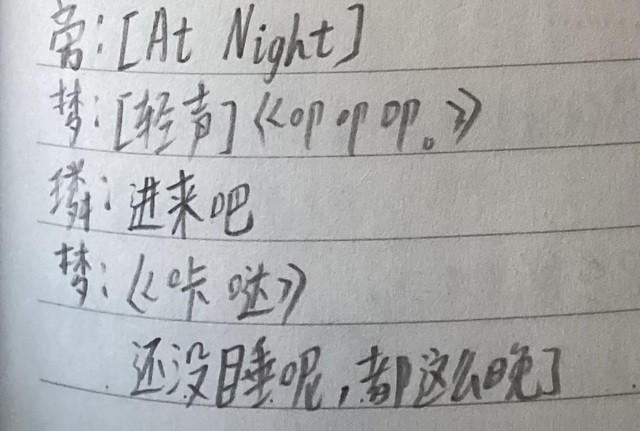 旁：[At Night]
梦：[轻声]《叩叩叩。》
璘：进来吧
梦：《咔哒》
还没睡呢，都这么晚了